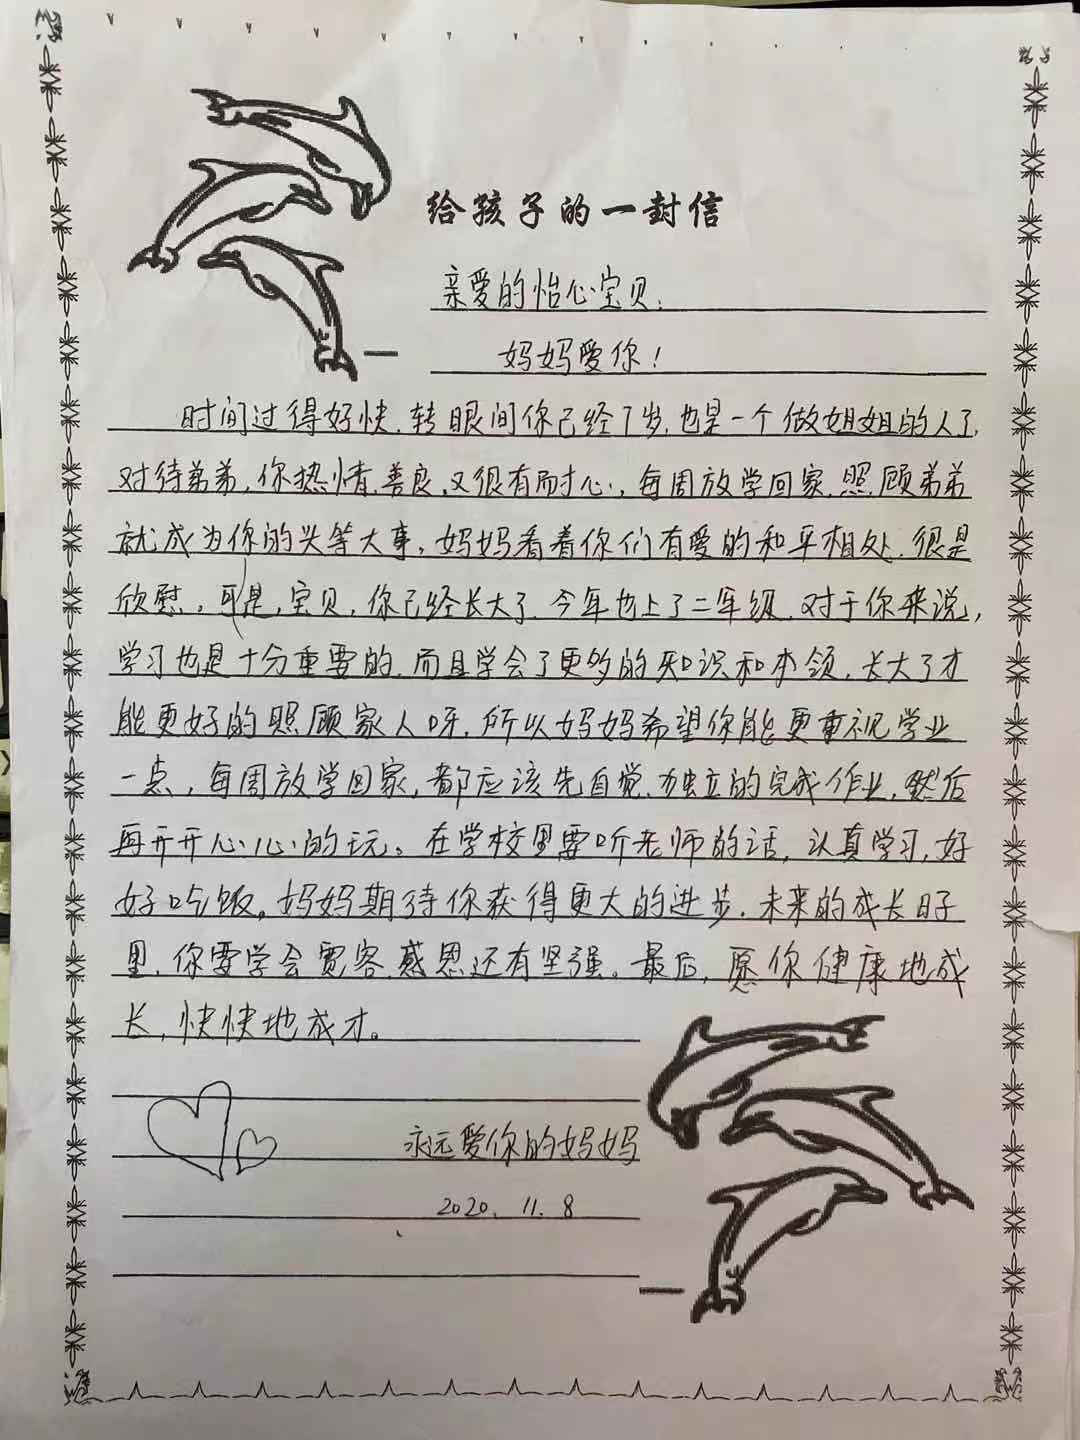 给孩子的一封信
亲爱的怡心宝贝：
妈妈爱你！
时间过得好快，转眼间你已经7岁，也是一个做姐姐的人了，
对待弟弟，你热情、善良、又很有耐心，每周放学回家，照顾弟弟
就成为你的头等大事，妈妈看着你们有爱的和平相处，很是
欣慰。可是，宝贝，你已经长大了，今年也上了二年级，对于你来说，
学习也是十分重要的，而且学会了更多的知识和本领，长大了才
能更好的照顾家人呀，所以妈妈希望你能更重视学业
一点，每周放学回家，都应该先自觉、独立的完成作业，然后
再开开心心的玩。在学校里要听老师的话，认真学习，好
好吃饭。妈妈期待你获得更大的进步，未来的成长日子
里，你要学会宽容、感恩还有坚强。最后，愿你健康地成
长，快快地成才。
永远爱你的妈妈
2020.11.8